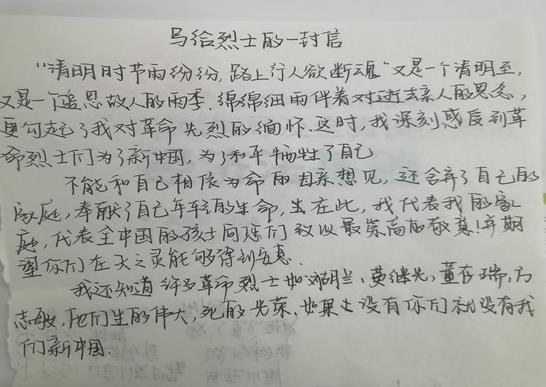 写给烈士的一封信
“清明时节雨纷纷，路上行人欲断魂”又是一个清明至，
又是一个追思故人的雨季。绵绵细雨伴着对逝去亲人的思念，
更勾起了我对革命先烈的缅怀。这时，我深刻感受到革
命烈士们为了新中国，为了和平牺牲了自己
不能和自己相依为命的母亲想见，还舍弃了自己的
家庭，奉献了自己年轻的生命，在此，我代表我的家
庭，代表全中国的孩士向你们致以最崇高的敬意！并期
望你们在天之灵能够得到
我还知道许多革命烈士如刘胡兰、黄继光，董存瑞，方
志敏，他们生的伟大，死的光荣，如果没有你们就没有我
们新中国.